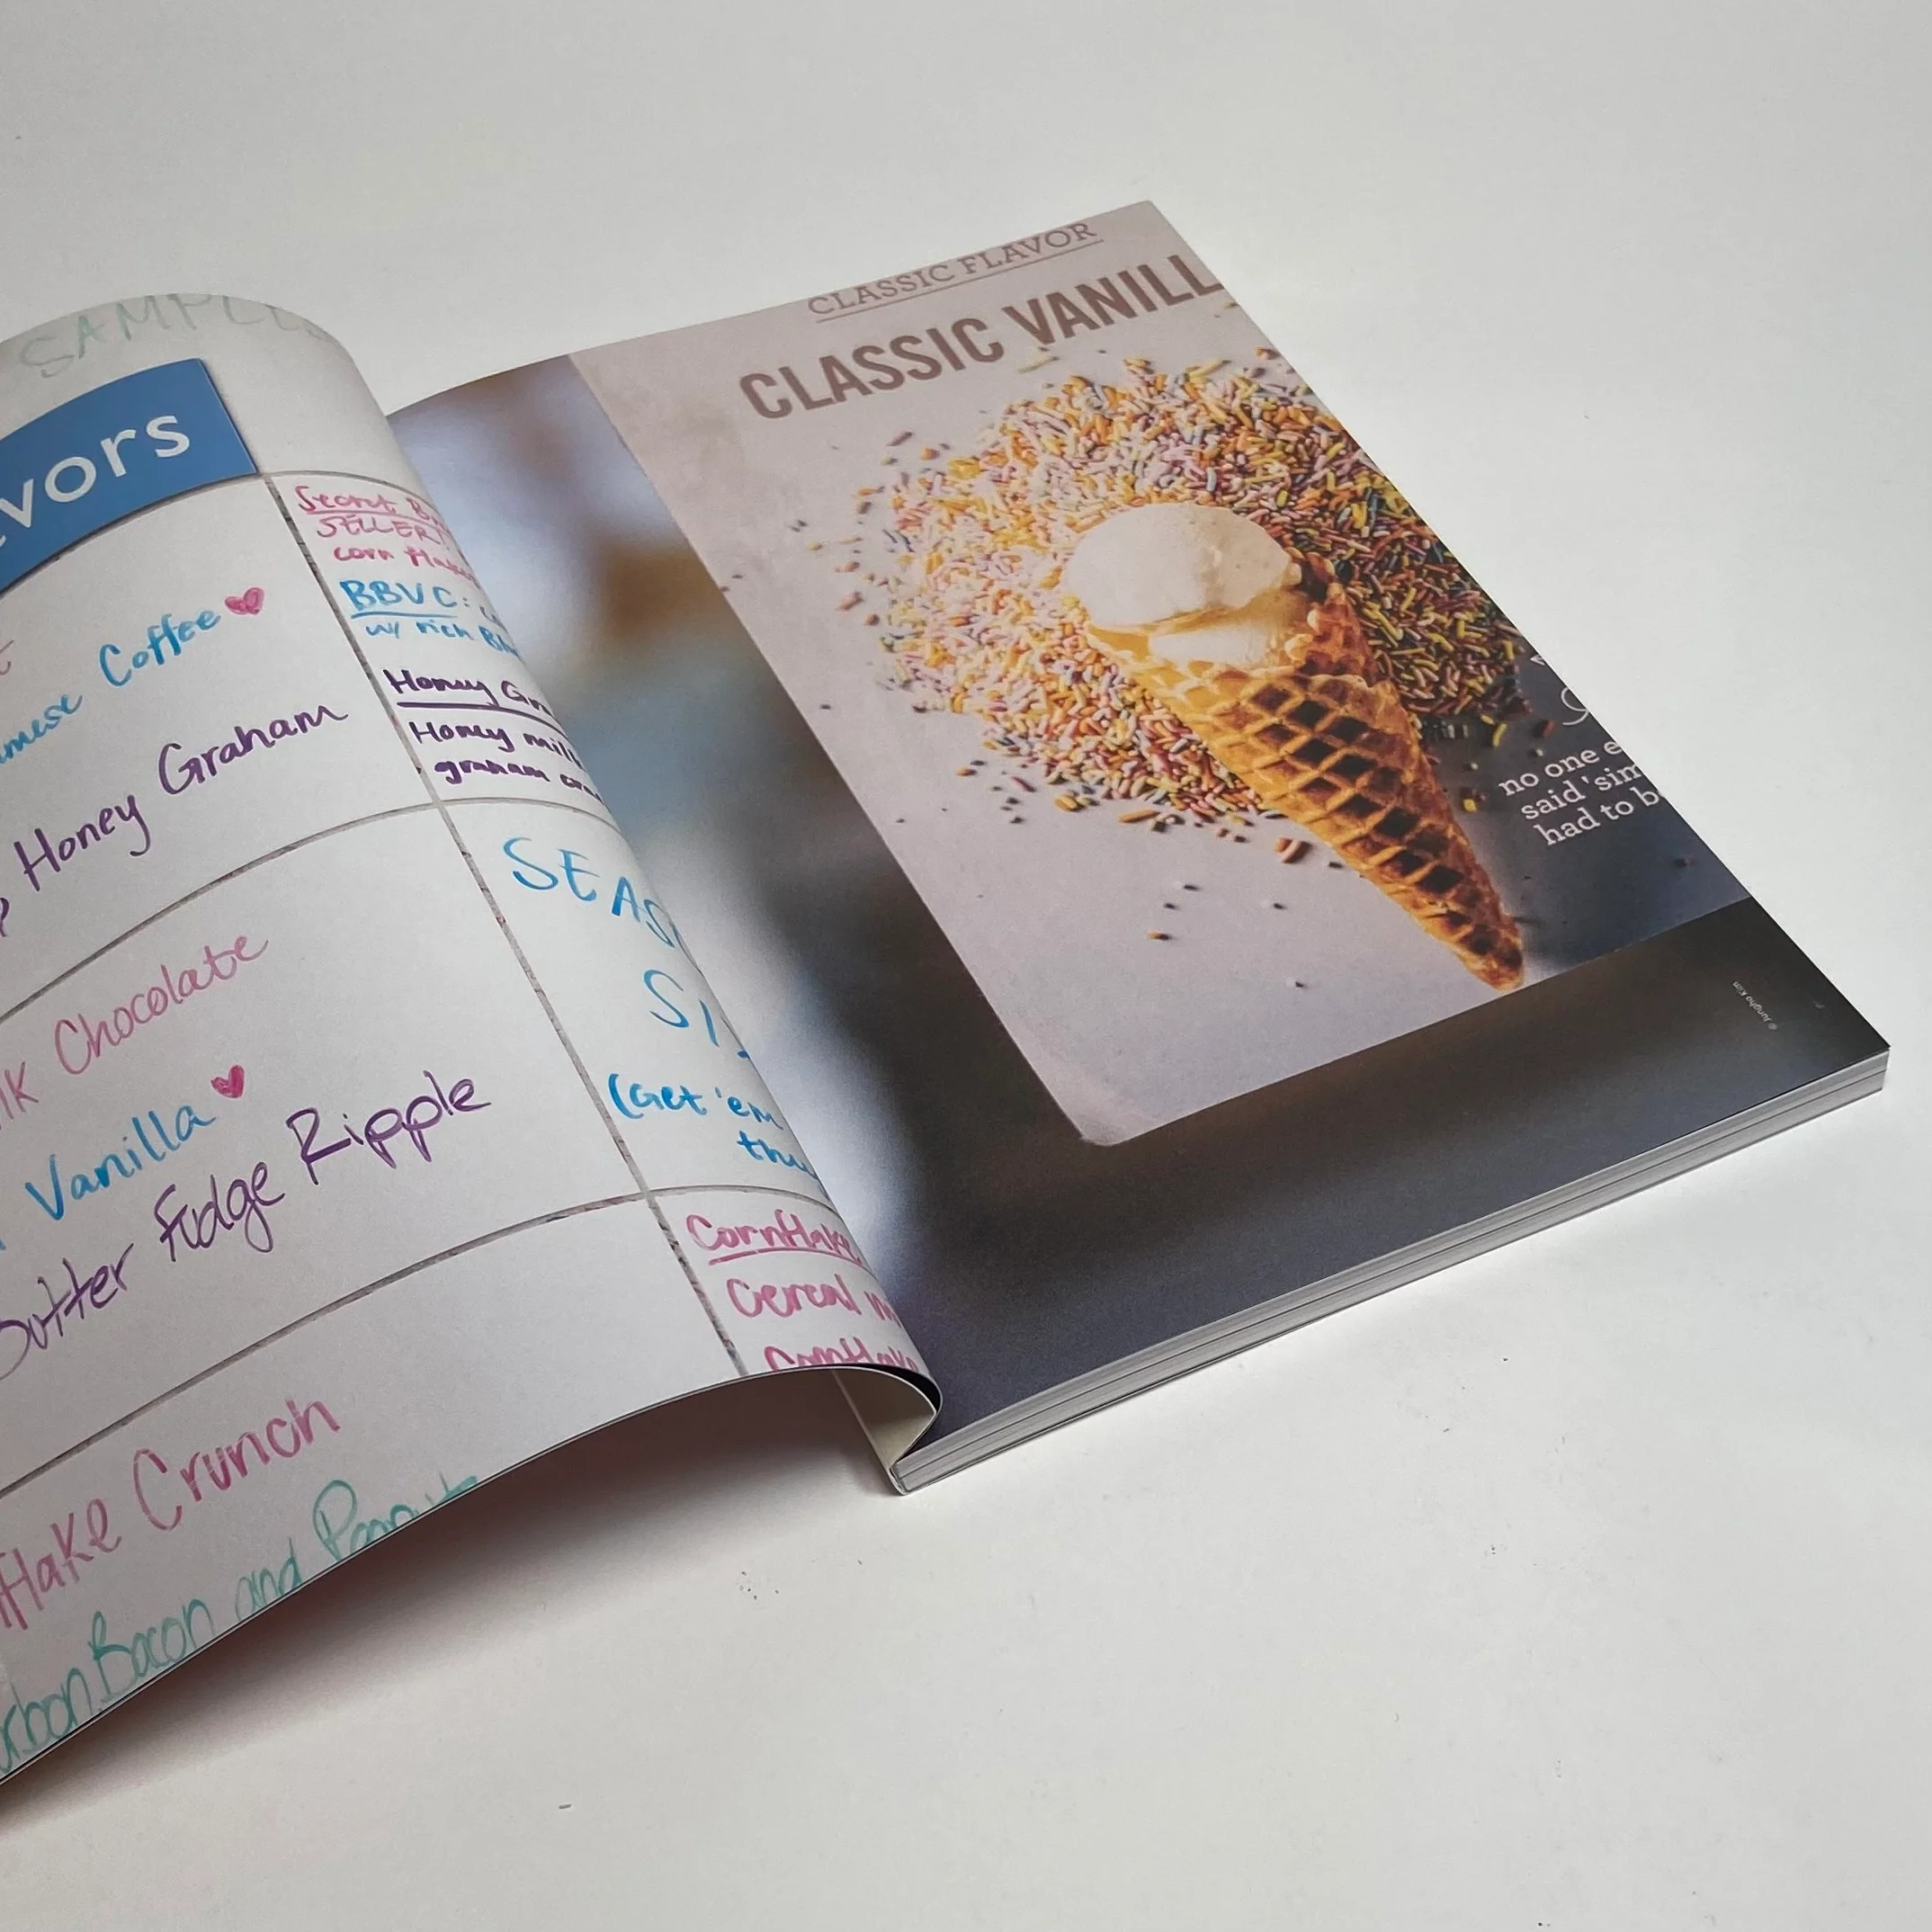 SAMPLES
vors
Coffee
Honey Graham
Chocolate
Vanilla
Butter Fudge Ripple
flake Crunch
Bacon and Peanuts
Secret
SELLER
corn flake
BBVC:
w/ rich
Honey
Honey
graham
SEAS
(Get 'em
Cornflake
Cereal
Cornflake
CLASSIC FLAVOR
CLASSIC VANILL
no one e
said 'sim
had to b
© Jungho Kim